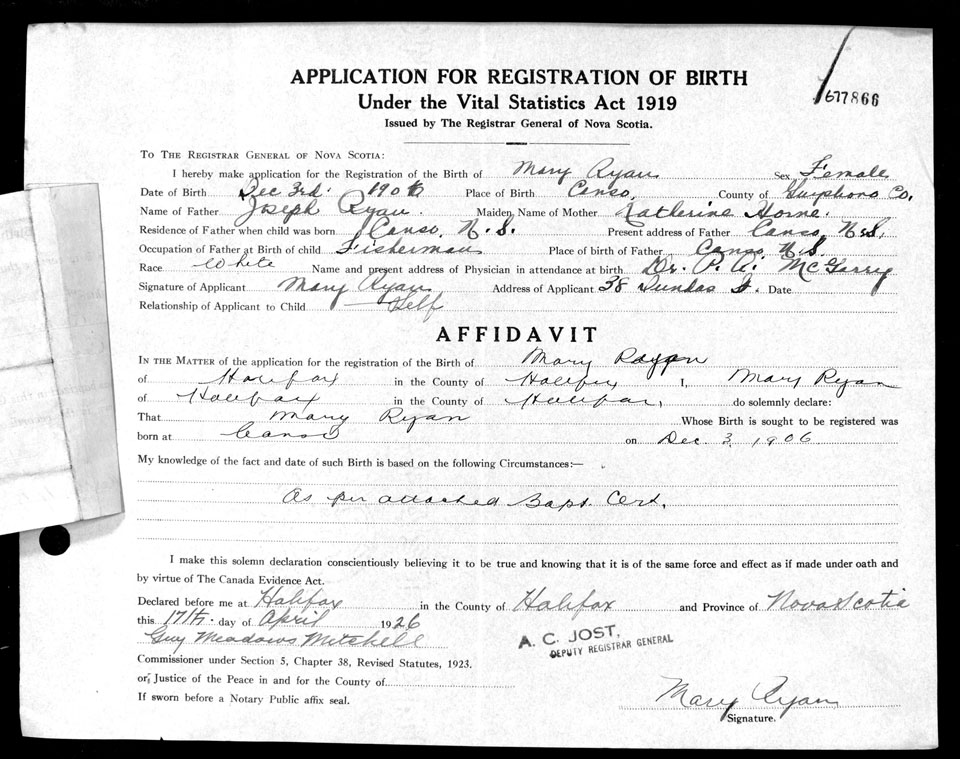 APPLICATION FOR REGISTRATION OF BIRTH
Under the Vital Statistics Act 1919
677866
Issued by The Registrar General of Nova Scotia.
TO THE REGISTRAR GENERAL OF NOVA SCOTIA:
I hereby make application for the Registration of the Birth of Mary Ryan Sex Female
Date of Birth Dec 3rd. 1906 Place of Birth Canso County of Guysboro Co.
Name of Father Joseph Ryan. Maiden Name of Mother Katherine Horne.
Residence of Father when child was born Canso, N.S. Present address of Father Canso, N.S.
Occupation of Father at Birth of child Fisherman Place of birth of Father Canso, N.S.
Race White Name and present address of Physician in attendance at birth Dr. P. A. McGarry
Signature of Applicant Mary Ryan Address of Applicant 38 Dundas St. Date
Relationship of Applicant to Child Self
AFFIDAVIT
IN THE MATTER of the application for the registration of the Birth of Mary Ryan
of Halifax in the County of Halifax I, Mary Ryan
of Halifax in the County of Halifax, do solemnly declare:
That Mary Ryan Whose Birth is sought to be registered was
born at Canso on Dec. 3, 1906
My knowledge of the fact and date of such Birth is based on the following Circumstances:—
As per attached Bapt. Cert.
I make this solemn declaration conscientiously believing it to be true and knowing that it is of the same force and effect as if made under oath and
by virtue of The Canada Evidence Act.
Declared before me at Halifax in the County of Halifax and Province of Nova Scotia
this 17th day of April 1926
Guy Meadows Mitchell
A. C. JOST,
DEPUTY REGISTRAR GENERAL
Commissioner under Section 5, Chapter 38, Revised Statutes, 1923.
or, Justice of the Peace in and for the County of
If sworn before a Notary Public affix seal.
Mary Ryan
Signature.